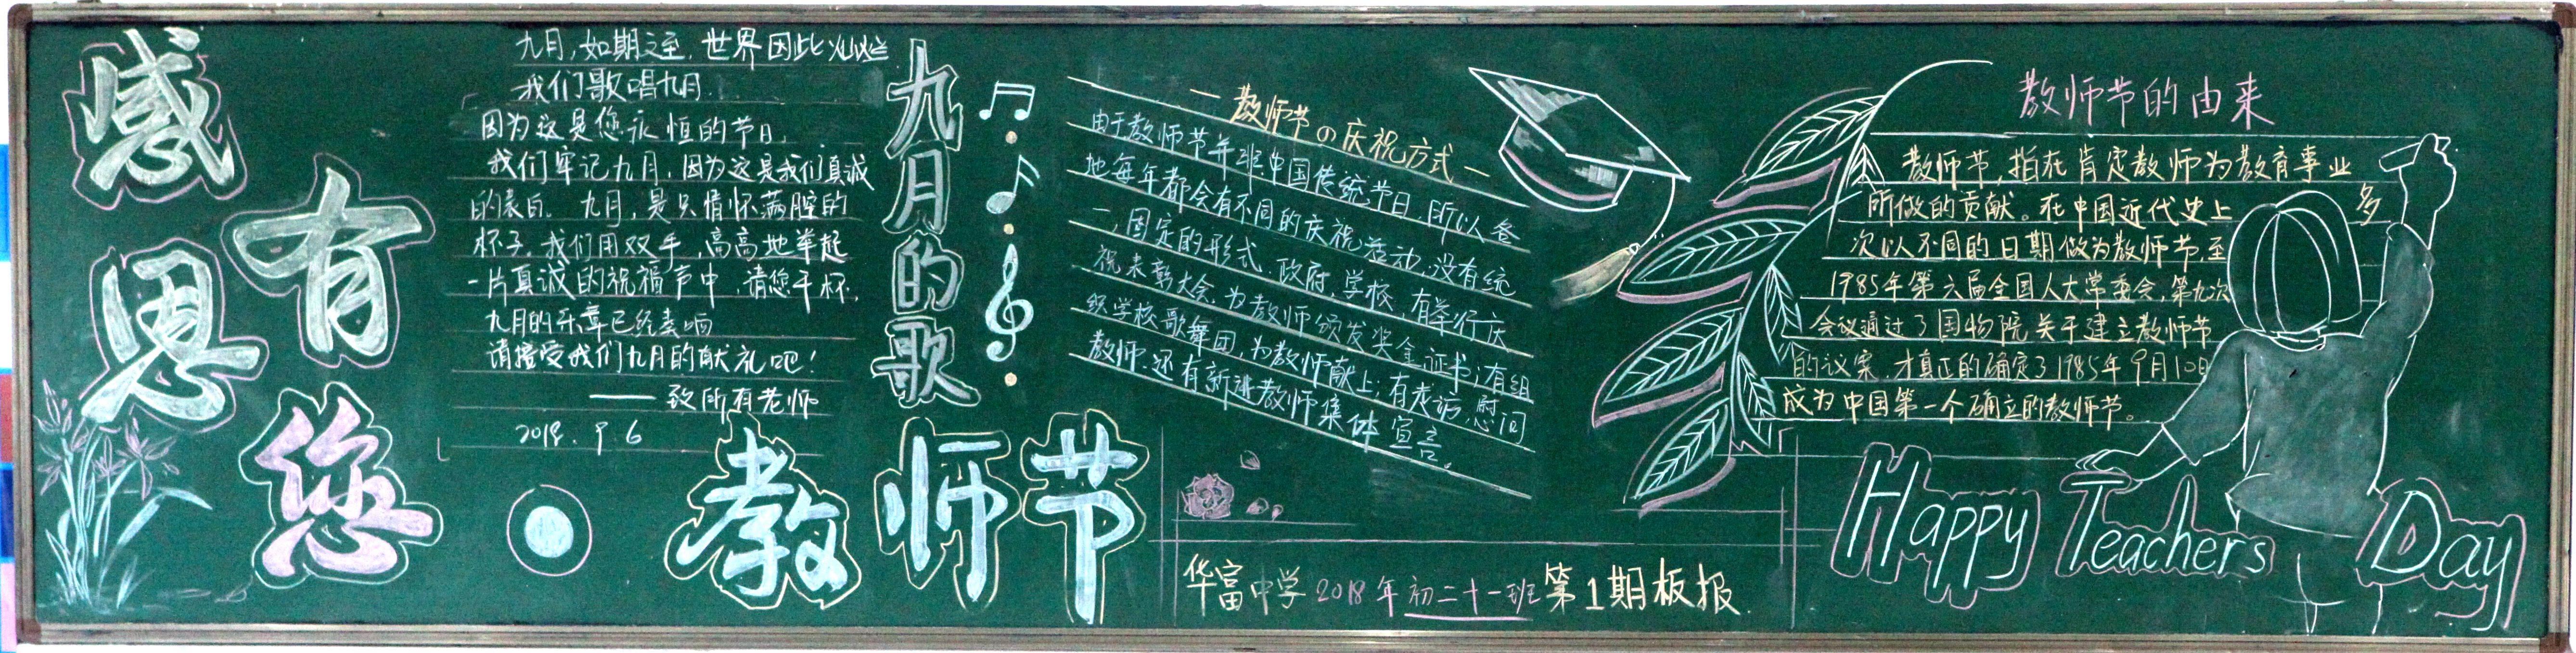 感恩
有您
九月,如期之至,世界因此灿烂
我们歌唱九月...
因为这是您永恒的节日,
我们牢记九月,因为这是我们真诚
的表白. 九月,是只情怀满腔的
杯子,我们用双手,高高地举起
一片真诚的祝福声中,请您干杯,
九月的乐章已经奏响
请接受我们九月的献礼吧!
——致所有老师
2018. 9. 6
九月的歌
教师节
一教师节の庆祝方式一
由于教师节年班中国传统节日,所以各
地每年都会有不同的庆祝活动,没有统
一,固定的形式.政府,学校,有举行庆
祝表彰大会,为教师颁发奖金证书;有组
织学校歌舞团,为教师献上;有走访,慰问
教师.还有新进教师集体宣言。
华富中学2018年初二十一班第1期板报
教师节的由来
教师节,指在肯定教师为教育事业
所做的贡献。在中国近代史上 多
次以不同的日期做为教师节.至
1985年第六届全国人大常委会,第九次
会议通过了国物院关于建立教师节
的议案,才真正的确定了1985年9月10日
成为中国第一个确立的教师节。
Happy Teachers Day